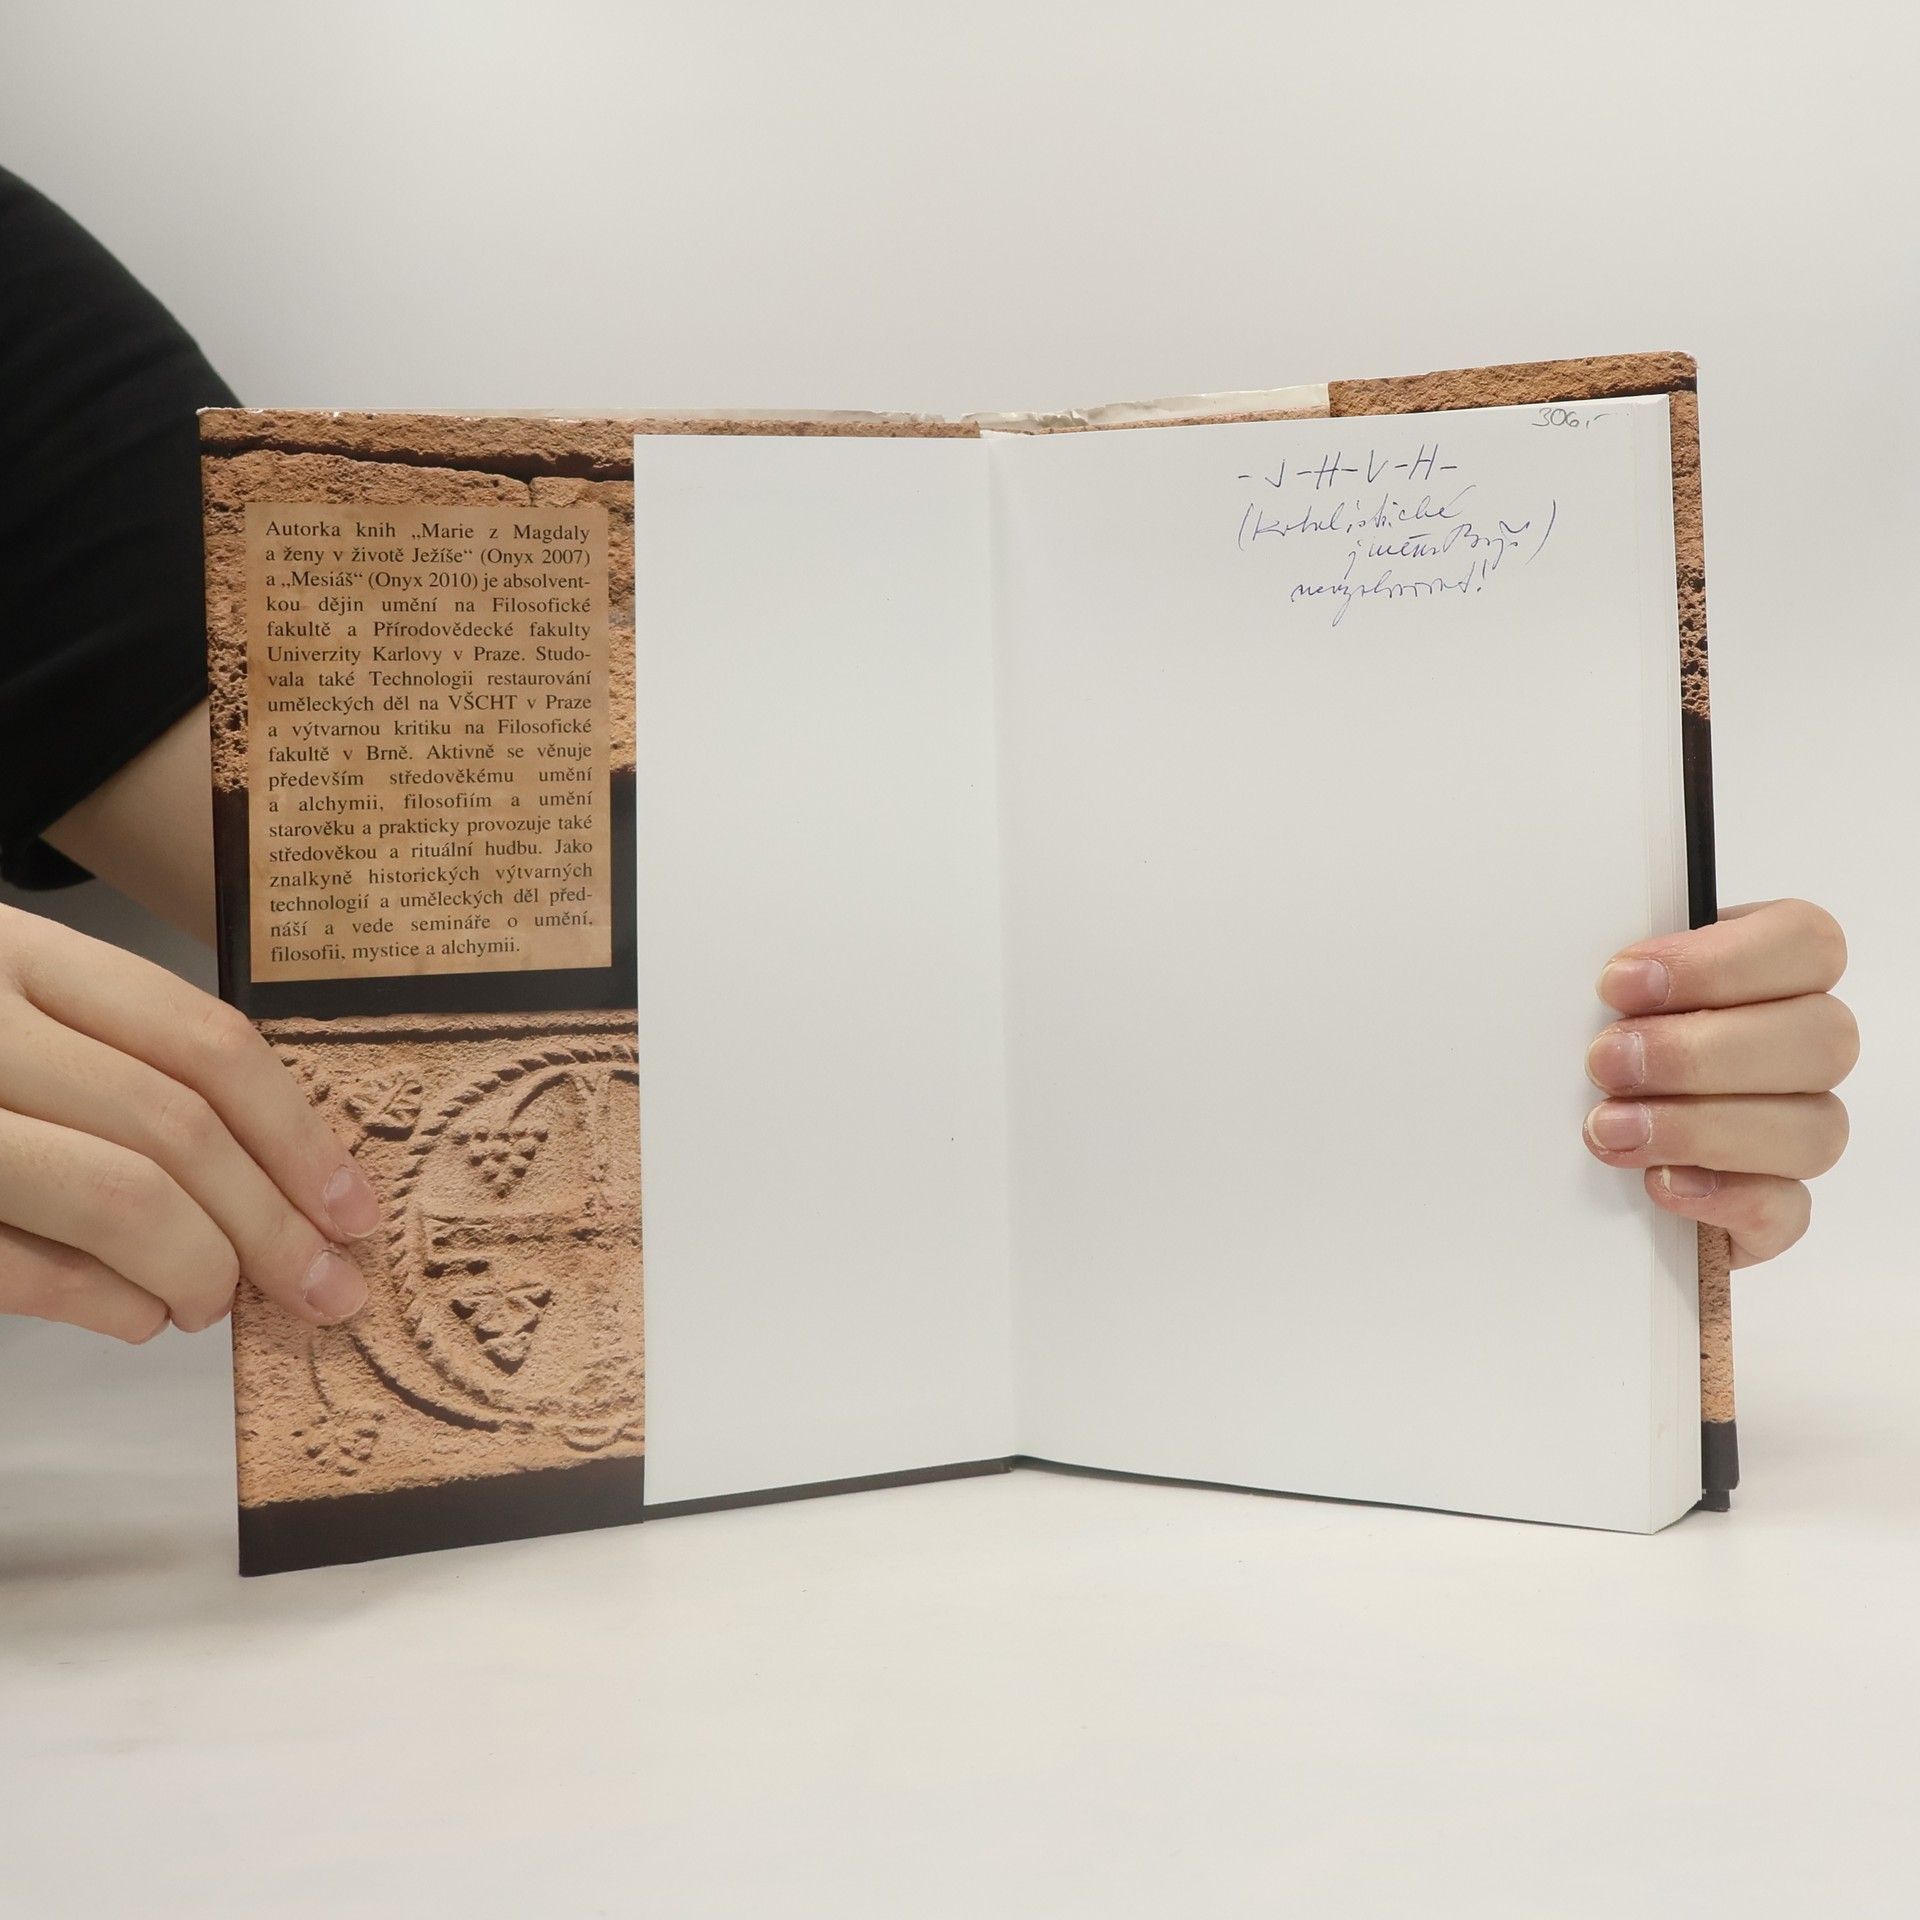 Autorka knih „Marie z Magdaly
a ženy v životě Ježíše“ (Onyx 2007)
a „Mesiáš“ (Onyx 2010) je absolvent-
kou dějin umění na Filosofické
fakultě a Přírodovědecké fakulty
Univerzity Karlovy v Praze. Studo-
vala také Technologii restaurování
uměleckých děl na VŠCHT v Praze
a výtvarnou kritiku na Filosofické
fakultě v Brně. Aktivně se věnuje
především středověkému umění
a alchymii, filosofiím a umění
starověku a prakticky provozuje také
středověkou a rituální hudbu. Jako
znalkyně historických výtvarných
technologií a uměleckých děl před-
náší a vede semináře o umění,
filosofii, mystice a alchymii.
306,-
- J - H - V - H -
(kabalistické
jméno Boží)